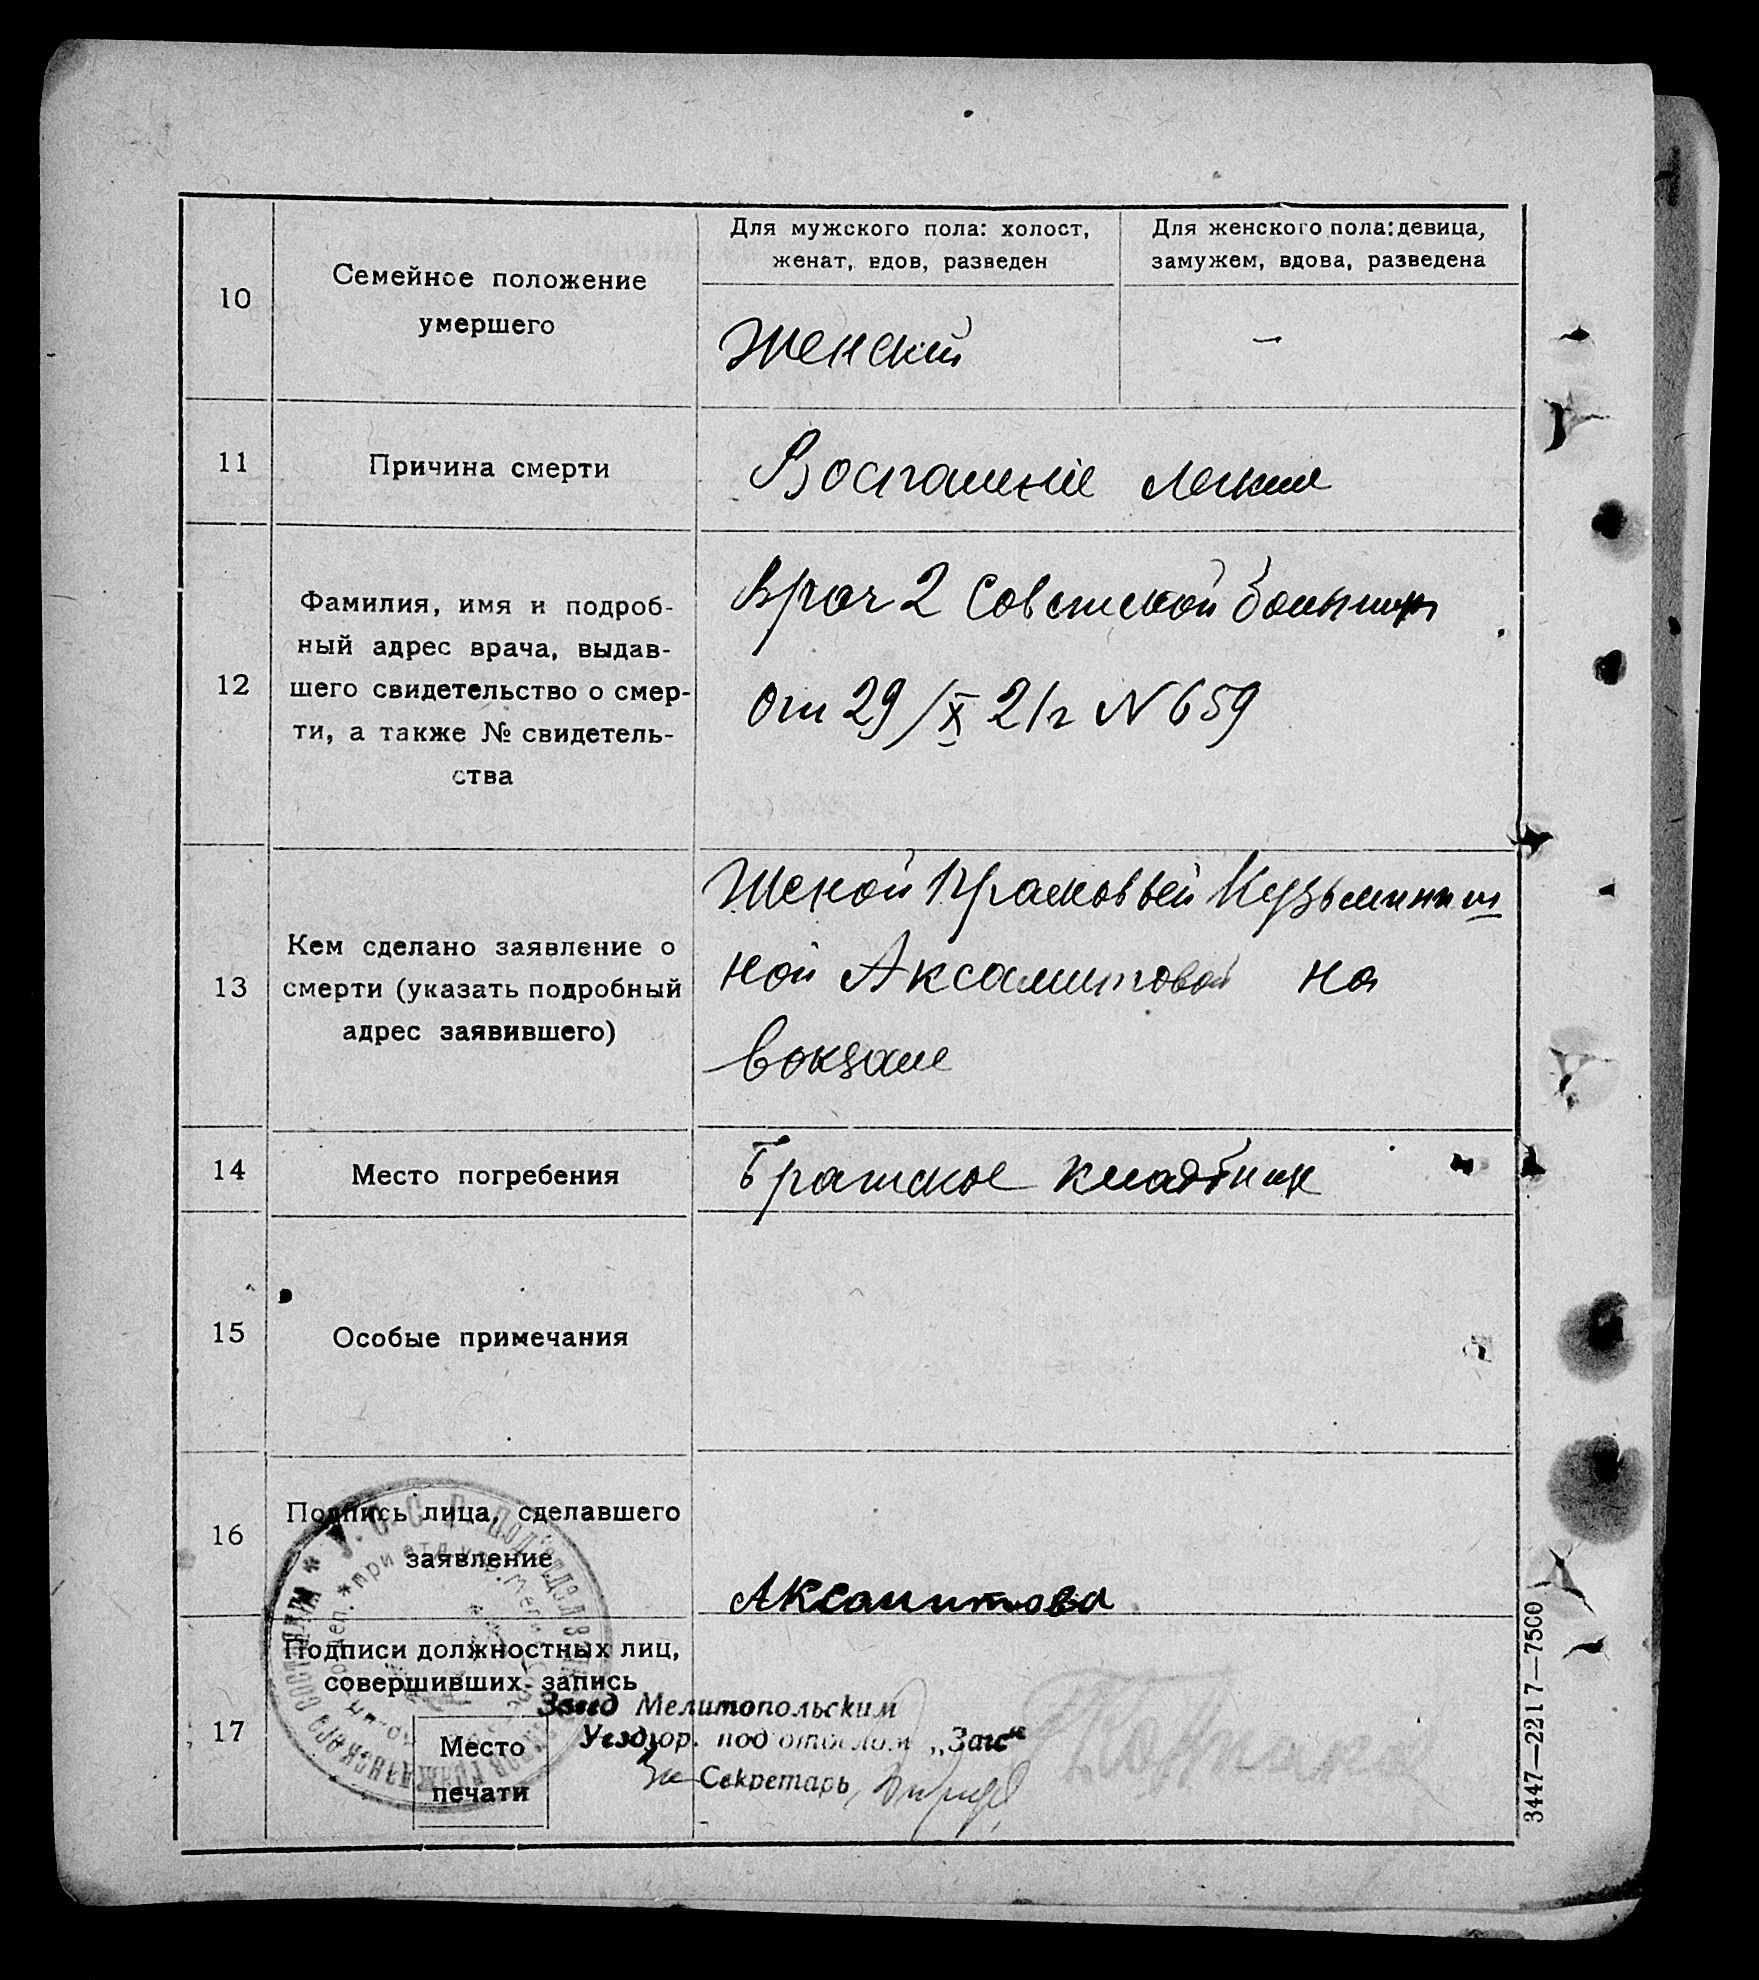 10
Семейное положение
умершего
Для мужского пола: холост,
женат, вдов, разведен
Для женского пола: девица,
замужем, вдова, разведена
Женский
–
11
Причина смерти
Воспаление легких
12
Фамилия, имя и подроб-
ный адрес врача, выдав-
шего свидетельство о смер-
ти, а также № свидетель-
ства
Врач 2 Советской больницы
от 29/X 21 г N 659
13
Кем сделано заявление о
смерти (указать подробный
адрес заявившего)
Женой Прасковьей Кузьминиш
ной Аксамитовой на
вокзале
14
Место погребения
Братское кладбище
15
Особые примечания
16
Подпись лица, сделавшего
заявление
Аксамитова
17
Подписи должностных лиц,
совершивших запись
Место
печати
Завед Мелитопольским
Уездгор. подотделом „Загс“
За Секретарь
3447—2217—7500